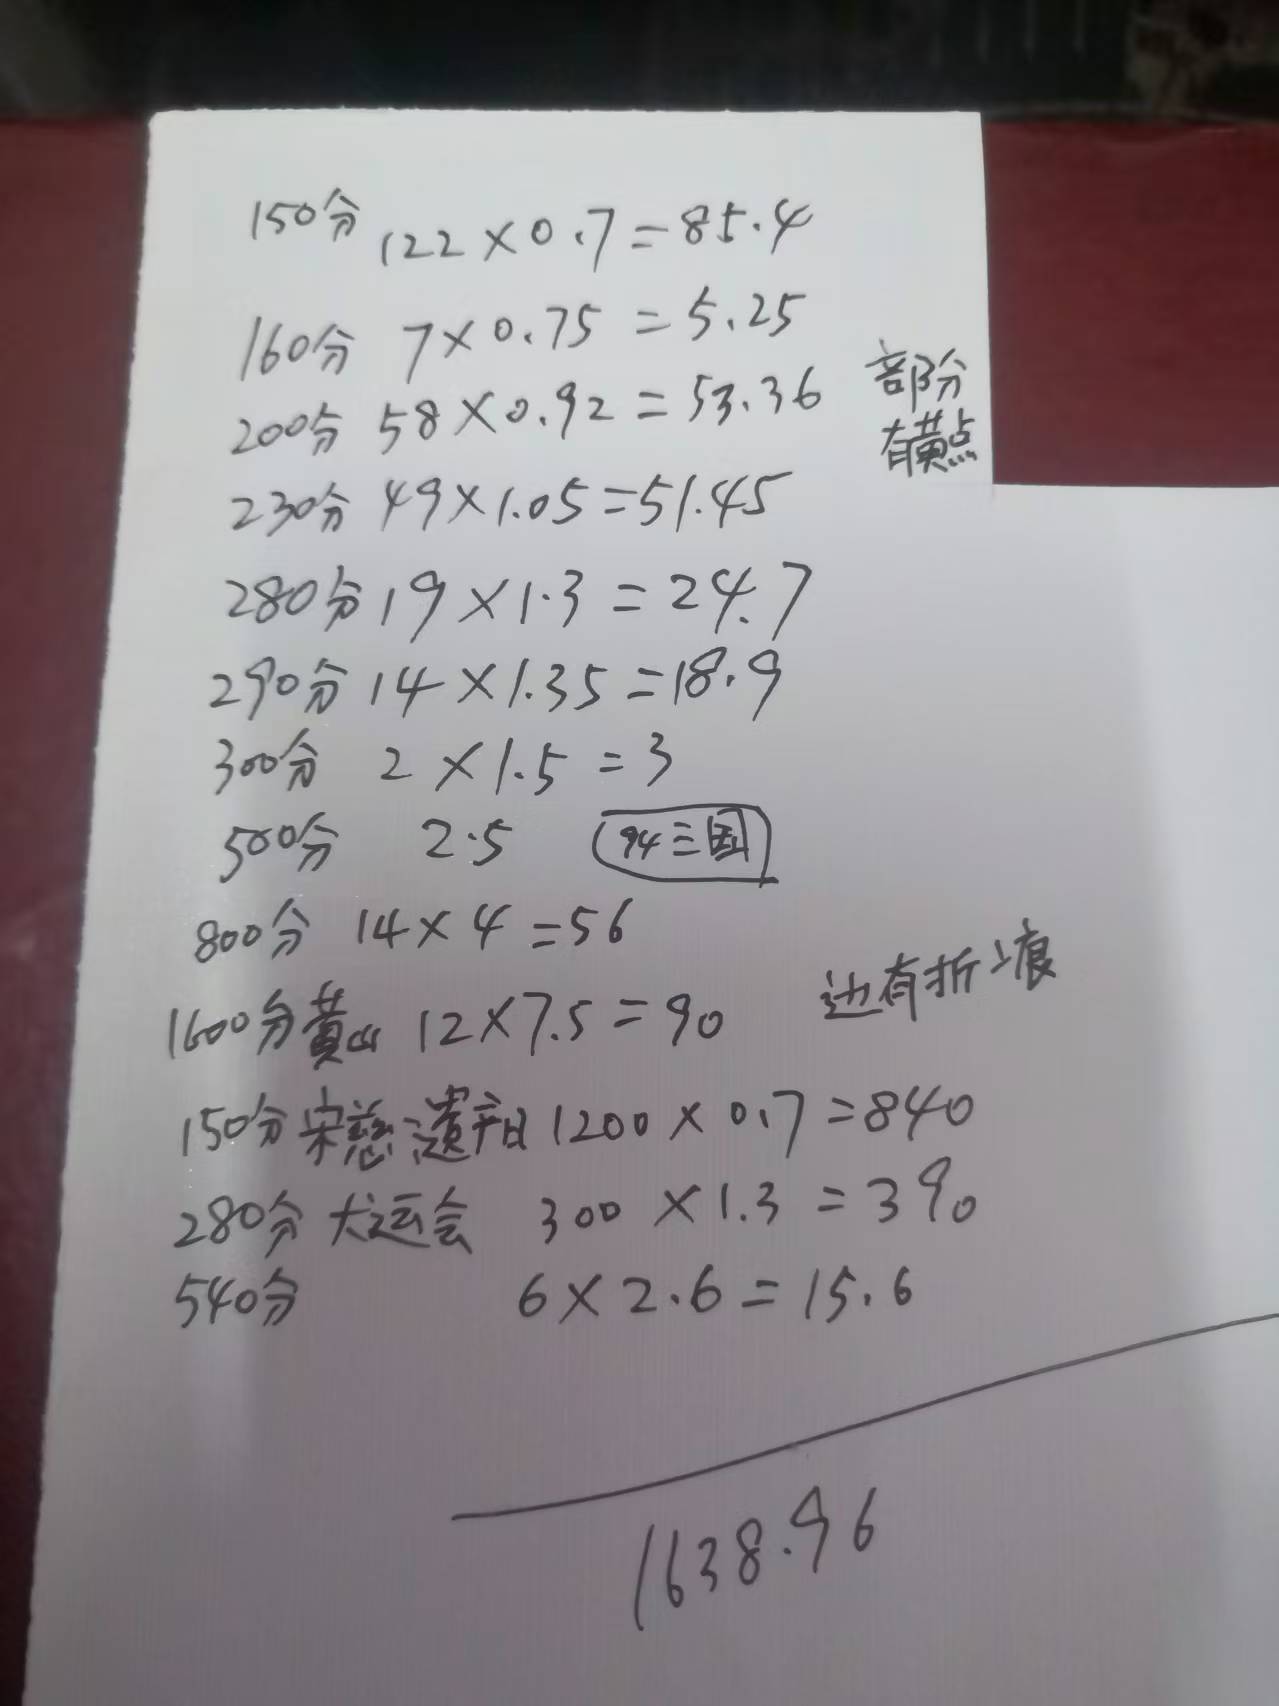 150分 122×0.7=85.4
160分 7×0.75=5.25
200分 58×0.92=53.36 部份
有黄点
230分 49×1.05=51.45
280分 19×1.3=24.7
290分 14×1.35=18.9
300分 2×1.5=3
500分 2.5 94三国
800分 14×4=56
1600分黄山 12×7.5=90 边有折痕
150分宋慈遗产日1200×0.7=840
280分大运会 300×1.3=390
540分 6×2.6=15.6
1638.96